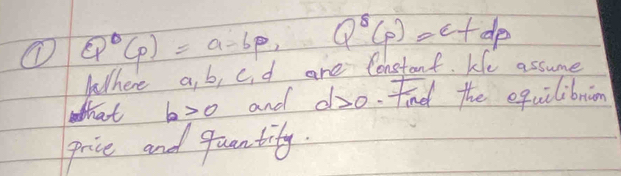 ① Q^D(p) = a - bp, Q^S(p) = c + dp
Where a, b, c, d are Constant. We assume
that b>0 and d>0. Find the equilibrium
price and quantity.